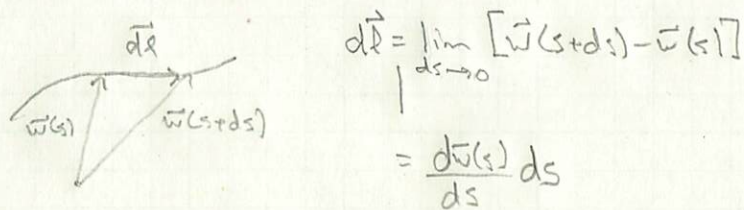 d\vec{l}
\vec{w}(s)
\vec{w}(s+ds)
d\vec{l} = lim [\vec{w}(s+ds) - \vec{w}(s)]
ds→0
= \frac{d\vec{w}(s)}{ds} ds